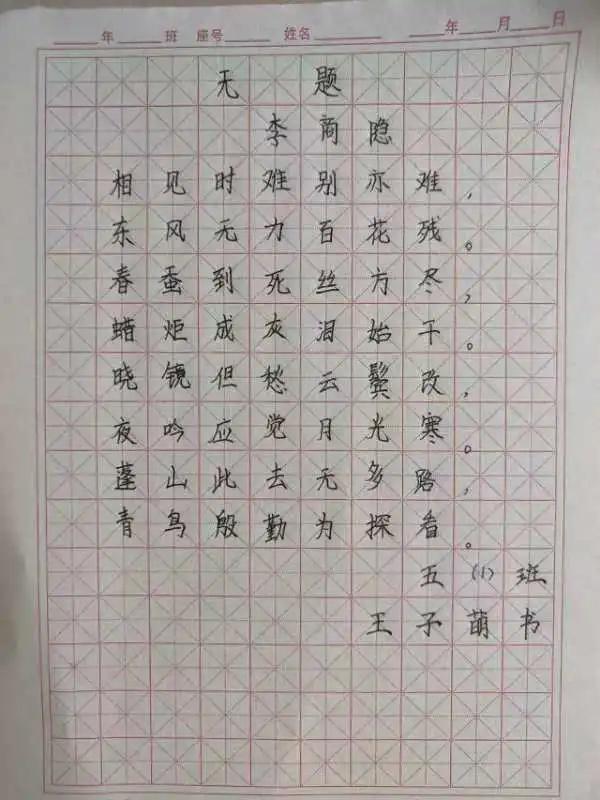 ____年____班 座号____ 姓名____ ____年____月____日
无题
李商隐
相见时难别亦难，
东风无力百花残。
春蚕到死丝方尽，
蜡炬成灰泪始干。
晓镜但愁云鬓改，
夜吟应觉月光寒。
蓬山此去无多路，
青鸟殷勤为探看。
五(1)班
王子萌书